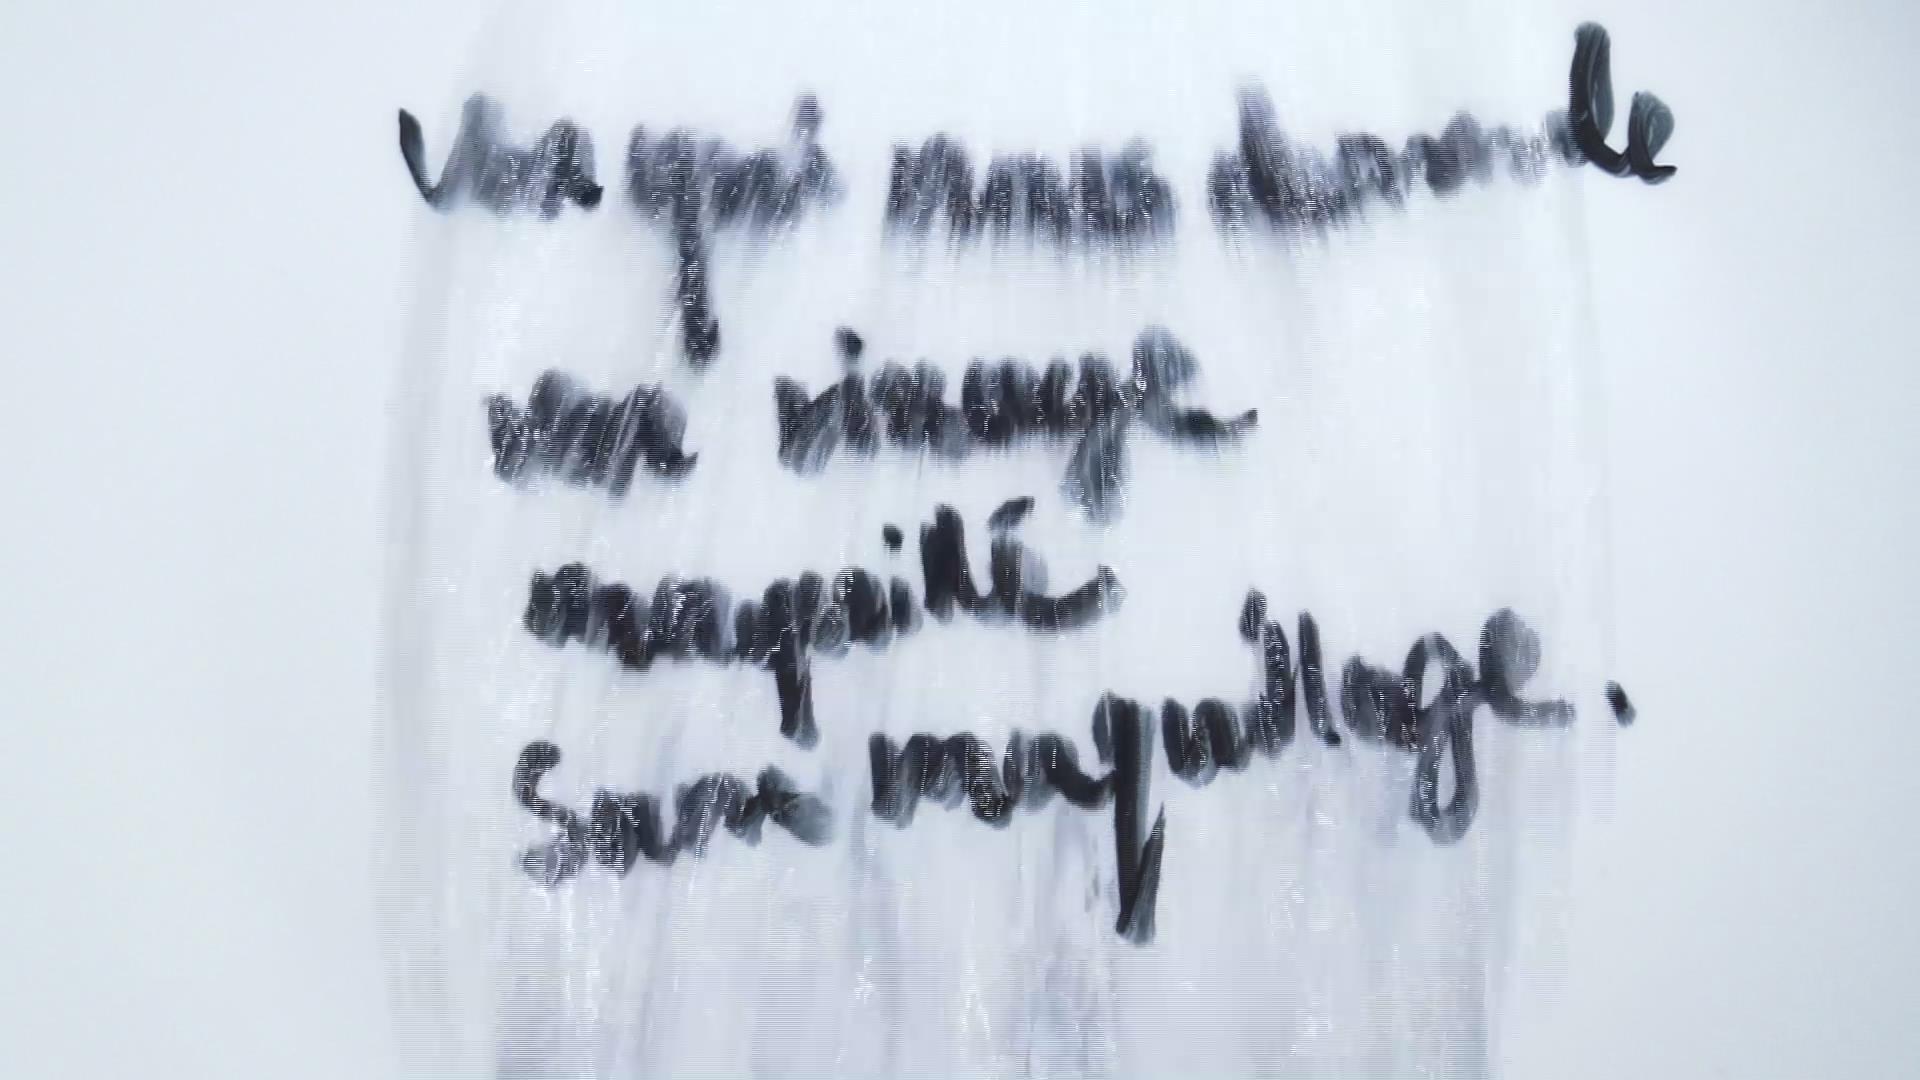 un qui nous donne
un visage
maquillé
sans maquillage.